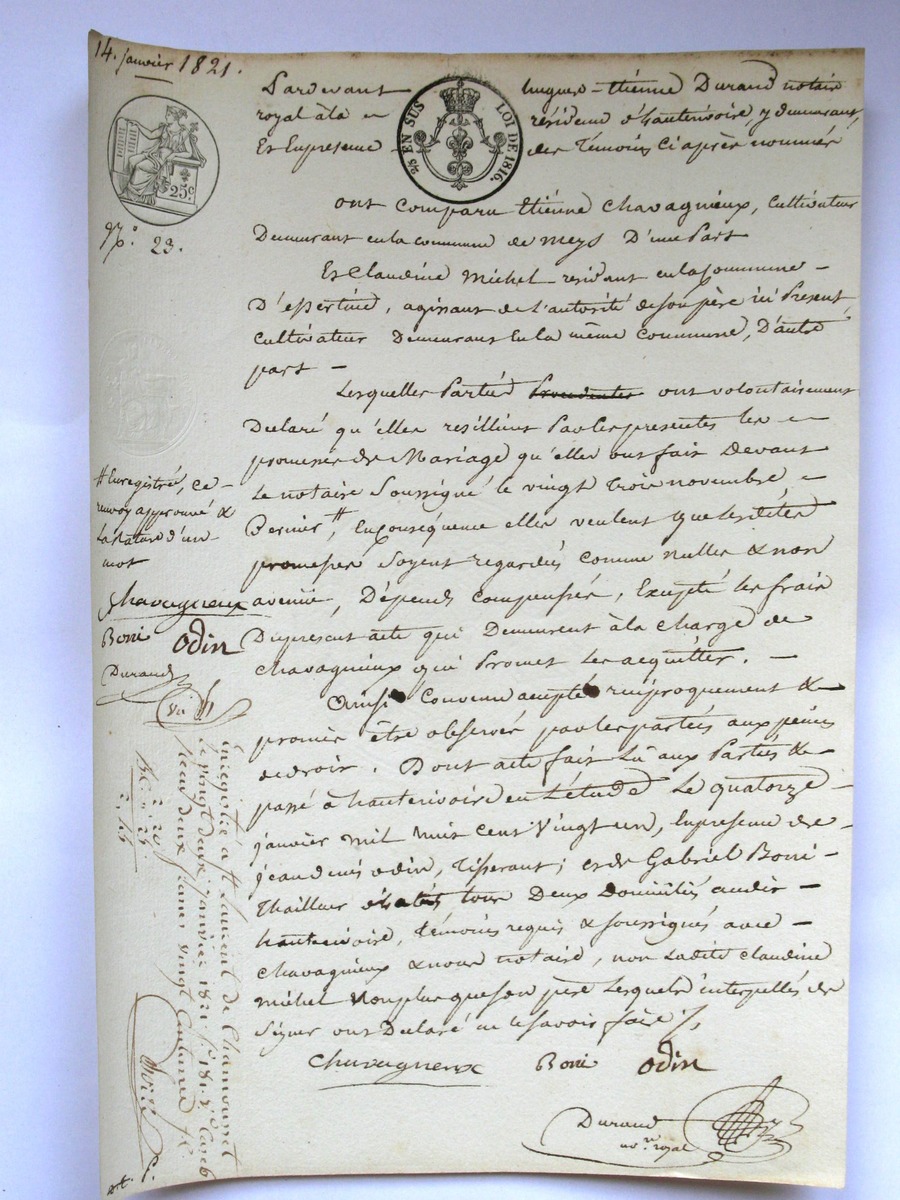 14. janvier 1821.
25c
2/5 EN SUS LOI DE 1816.
N.º 23.
Pardevant hugues-Etienne Durand notaire
royal à la résidence d'hauterivoire, y demeurant,
Et En presence des témoins ci après nommés
ont comparu Etiénne Chavagnieux, Cultivateur
Demeurant en la commune de meys D'une Part
Et Claudine Michel residant en la Commune
D'essertine, agissant de l'autorité de son père ici Present,
Cultivateur Demeurant En la même commune, D'autre
part
Lesquelles Parties ont volontairement
Declaré qu'elles resillient Par les presentes les
promesses de Mariage qu'elles ont fait Devant
Le notaire Soussigné le vingt trois novembre
Dernier #, En conséquence elles veulent que lesdites
promesses Soyent regardés comme nulles & non
avenue, Dépends compensés, Excepté les frais
Du present acte qui Demeurent à la charge de
Chavagnieux qui Promet les acquitter.
Ainsi Convenu accepté réciproquement &
promis être observé par les parties aux peines
de droit. Dont acte fait Lû aux Parties &
passé à hauterivoire en l'étude Le quatorze
janvier mil huit cent Vingt un, En presence de
jean denis odin, tisserant; et de Gabriel Boni
thailleur tous Deux Domiciliés audit
hauterivoire, témoins requis & soussignés avec
Chavagnieux & nous notaire, non Ladite Claudine
michel Non plus que son père Lesquels interpellés de
Signer ont Declaré ne le savoir faire /.
Chavagneux Boni Odin
Durand
no.re royal
# Enregistrés, ce
renvoy approuvé &
La rature d'un
mot
Chavagneux
Boni Odin
Durand
Enregistré à St Laurent de Chamousset
le vingt deux janvier 1821 fº 181 vº
Reçu deux francs vingt Centimes
2. 20